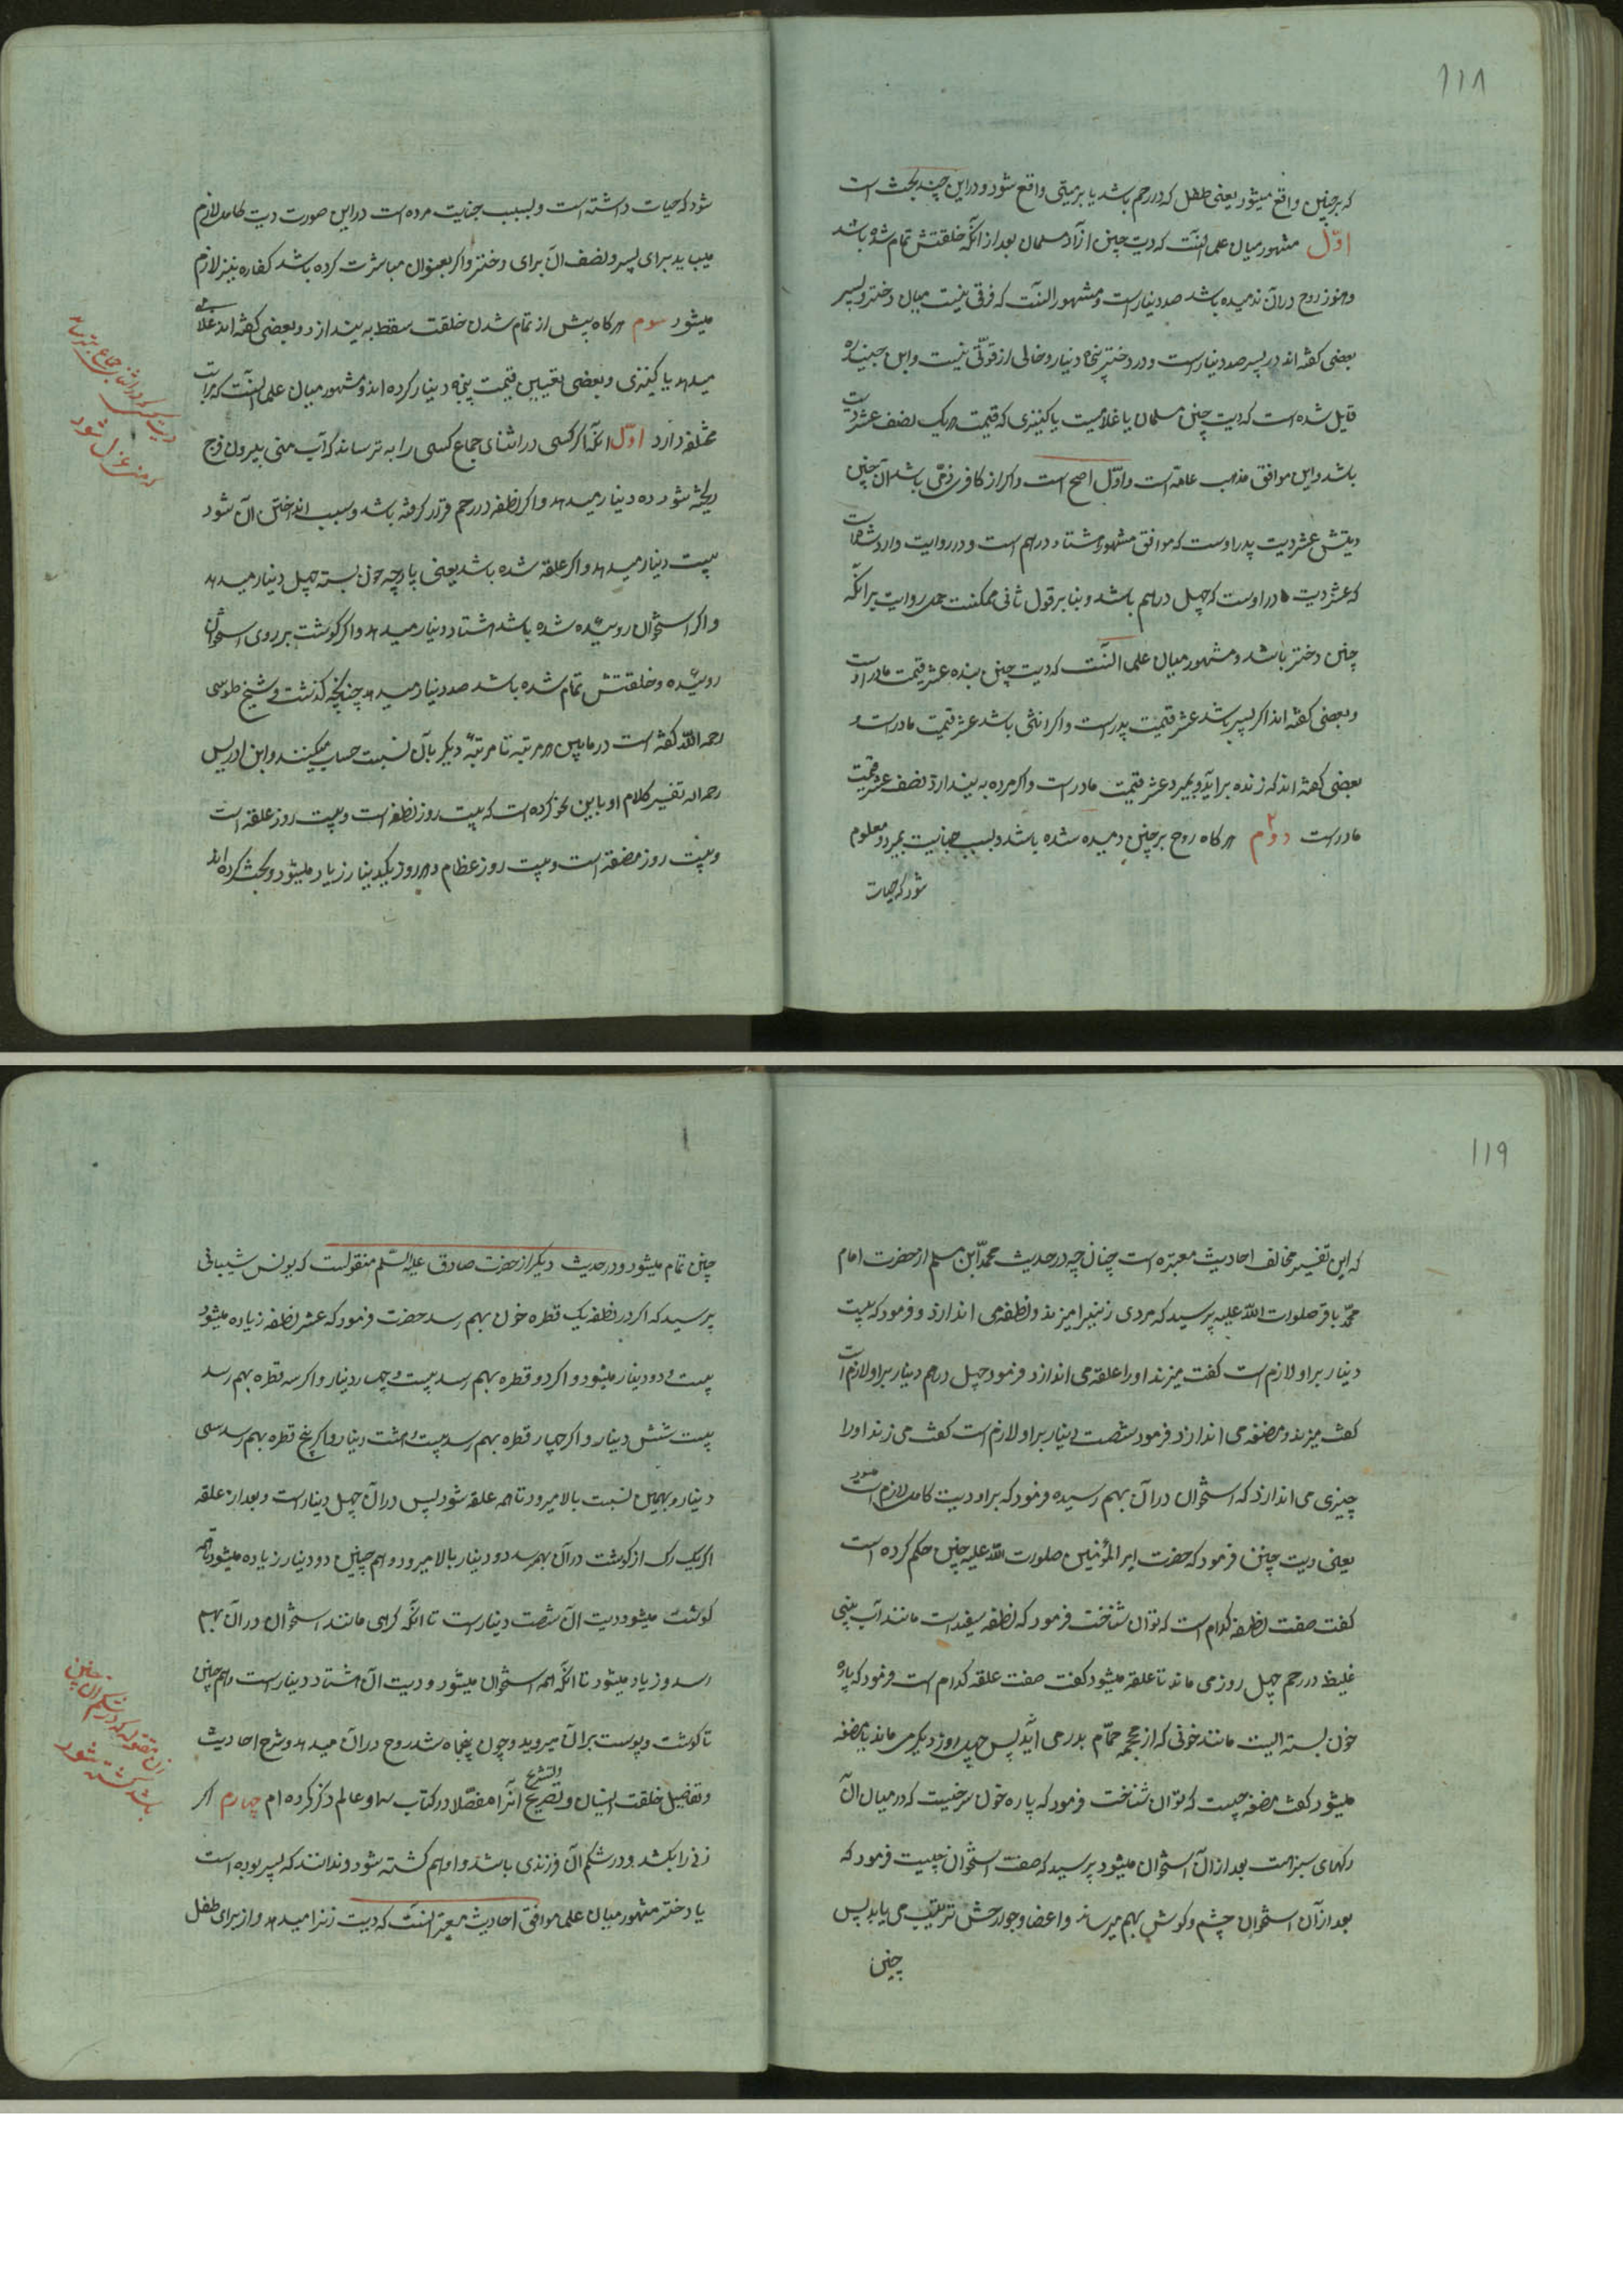 ۱۱۸
که برجنین واقع میشود یعنی طفل که در رحم باشد یا بر میتی واقع شود و دراین چند بحث است
اوّل مشهور میان علما آنست که دیت جنین ازآد مسلمان بعد از آنکه خلقتش تمام شده باشد
و هنوز روح در آن ندمیده باشد صد دینار است و مشهور آنست که فرقی نیست میان دختر و پسر
بعضی گفته اند در پسر صد دینار است و در دختر پنجاه دینار و خالی از قوّتی نیست و ابن جنید ره
قایل شده است که دیت جنین مسلمان یا غلامیست یا کنیزی که قیمت هریک نصف عشر دیت
باشد و این موافق مذهب عامّه است و اوّل اصح است و اکر از کافر ذمّی باشد آن جنین
دیتش عشر دیت پدر اوست که موافق مشهور هشتاد درهم است و در روایت وارد شده است
که عشر دیت مادر اوست که چهل درهم باشد و بنا بر قول ثانی ممکنست حمل روایت بر آنکه
جنین دختر باشد و مشهور میان علما آنست که دیت جنین بنده عشر قیمت مادر اوست
و بعضی گفته اند اکر پسر باشد عشر قیمت پدر است و اکر انثی باشد عشر قیمت مادرست و
بعضی گفته اند که زنده برآید و بمیرد عشر قیمت مادر است و اکر مرده به بیندازد نصف عشر قیمت
مادرست دوم ۲ هرکاه روح بر جنین دمیده شده باشد و بسبب جنایت بمیرد و معلوم
شود که حیات
شود که حیات داشته است و بسبب جنایت مرده است دراین صورت دیت کامل لازم
میباید برای پسر و نصف آن برای دختر و اکر بعنوان مباشرت کرده باشد کفاره نیز لازم
میشود سوم هرکاه پیش از تمام شدن خلقت سقط به بیندازد و بعضی گفته اند غلامی
میدهد یا کنیزی و بعضی تعیین قیمت پنجاه دینار کرده اند و مشهور میان علما آنست که مراتب
مختلفه دارد اوّل آنکه اکر کسی در اثنای جماع کسی را به ترساند که آب منی بیرون فرج
ریخته شود ده دینار میدهد و اکر نطفه در رحم قرار کرفته باشد و سبب انداختن آن شود
بیست دینار میدهد و اکر علقه شده باشد یعنی پارچه خون بسته چهل دینار میدهد
و اکر استخوان روییده شده باشد هشتاد دینار میدهد و اکر کوشت بر روی استخوان
روییده و خلقتش تمام شده باشد صد دینار میدهد چنانچه کذشت و شیخ طوسی
رحمه اللّه گفته است در مابین هر مرتبه تا مرتبهٔ دیکر بآن نسبت حساب میکنند و ابن ادریس
رحمه اله تفسیر کلام او باین نحو کرده است که بیست روز نطفه است و بیست روز علقه است
و بیست روز مضغه است و بیست روز عظام و هر روز یکدینار زیاد میشود و بحث کرده اند
دیت کسی که در اثنای جماع بترساند
که منی عزل شود
۱۱۹
که این تفسیر مخالف احادیث معتبره است چنان چه در حدیث محمّد ابن مسلم از حضرت امام
محمّد باقر صلوات اللّه علیه پرسید که مردی زنیرا میزند و نطفه می اندازد و فرمود که بیست
دینار بر او لازم است گفت میزند او را علقه می اندازد فرمود چهل درهم دینار بر او لازم است
گفت میزند و مضغه می اندازد فرمود شصت دینار بر او لازم است گفت می زند او را
چیزی می اندازد که استخوان در آن بهم رسیده فرمود که بر او دیت کامل لازم است
یعنی دیت جنین فرمود که حضرت امیر المؤمنین صلوات اللّه علیه چنین حکم کرده است
گفت صفت نطفه کدام است که توان شناخت فرمود که نطفه سفید است مانند آب بینی
غلیظ در رحم چهل روز می ماند تا علقه میشود گفت صفت علقه کدام است فرمود که پاره
خون بسته ایست مانند خونی که از محجمه حجّام بدر می آید پس چهل روز دیکر می ماند تا مضغه
میشود گفت مضغه چیست که توان شناخت فرمود که پاره خون سرخیست که در میان آن
رکهای سبز است بعد از آن استخوان میشود پرسید که صفت استخوان چیست فرمود که
بعد از آن استخوان چشم و کوش بهم میرساند و اعضا و جوارحش ترتیب می یابد پس
جنین
جنین تمام میشود و در حدیث دیکر از حضرت صادق علیه السّلم منقولست که یونس شیبانی
پرسید که اکر در نطفه یک قطره خون بهم رسد حضرت فرمود که عشر نطفه زیاده میشود
بیست و دو دینار میشود و اکر دو قطره بهم رسد بیست و چهار دینار و اکر سه قطره بهم رسد
بیست شش دینار و اکر چهار قطره بهم رسد بیست و هشت دینار و اکر پنج قطره بهم رسد سی
دینار و بهمین نسبت بالا میرود تا همه علقه شود پس در آن چهل دینار است و بعد از علقه
اکر یک رک از کوشت در آن بهم رسد دو دینار بالا میرود و هم چنین دو دینار زیاده میشود تا همه
کوشت میشود دیت آن شصت دینار است تا آنکه کرهی مانند استخوان در آن بهم
رسد و زیاد میشود تا آنکه همه استخوان میشود و دیت آن هشتاد دینار است و هم چنین
تا کوشت و پوست بر آن میروید و چون پنجماه شد روح در آن میدمد و شرح احادیث
و تفاصیل خلقت انسان و تصریح والتشریح آنرا مفصّلا در کتاب سماء و عالم ذکر کرده ام چهارم اکر
زنی را بکشد و در شکم آن فرزندی باشد و او هم کشته شود و ندانند که پسر بوده است
یا دختر مشهور میان علما موافق احادیث معتبر آنست که دیت زنرا میدهد و از برای طفل
زن مقتوله که در شکم آن جنین
باشد کشته شود